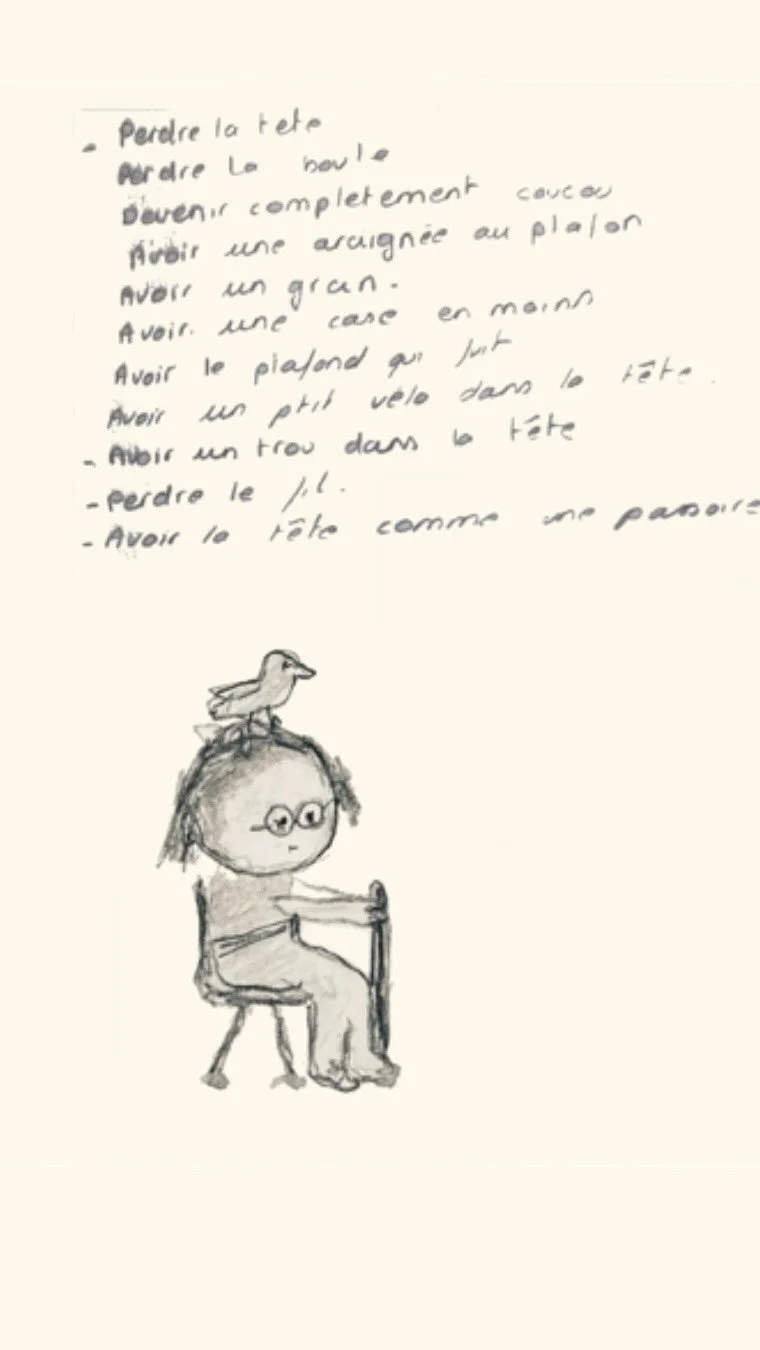 - Perdre la tete
Perdre La boule
Devenir completement coucou
Avoir une araignée au plafon
Avoir un grain.
Avoir une case en moins
Avoir le plafond qui fuit
Avoir un ptit vélo dans la tête.
- Avoir un trou dans la tête
- Perdre le fil.
- Avoir la tête comme une passoire